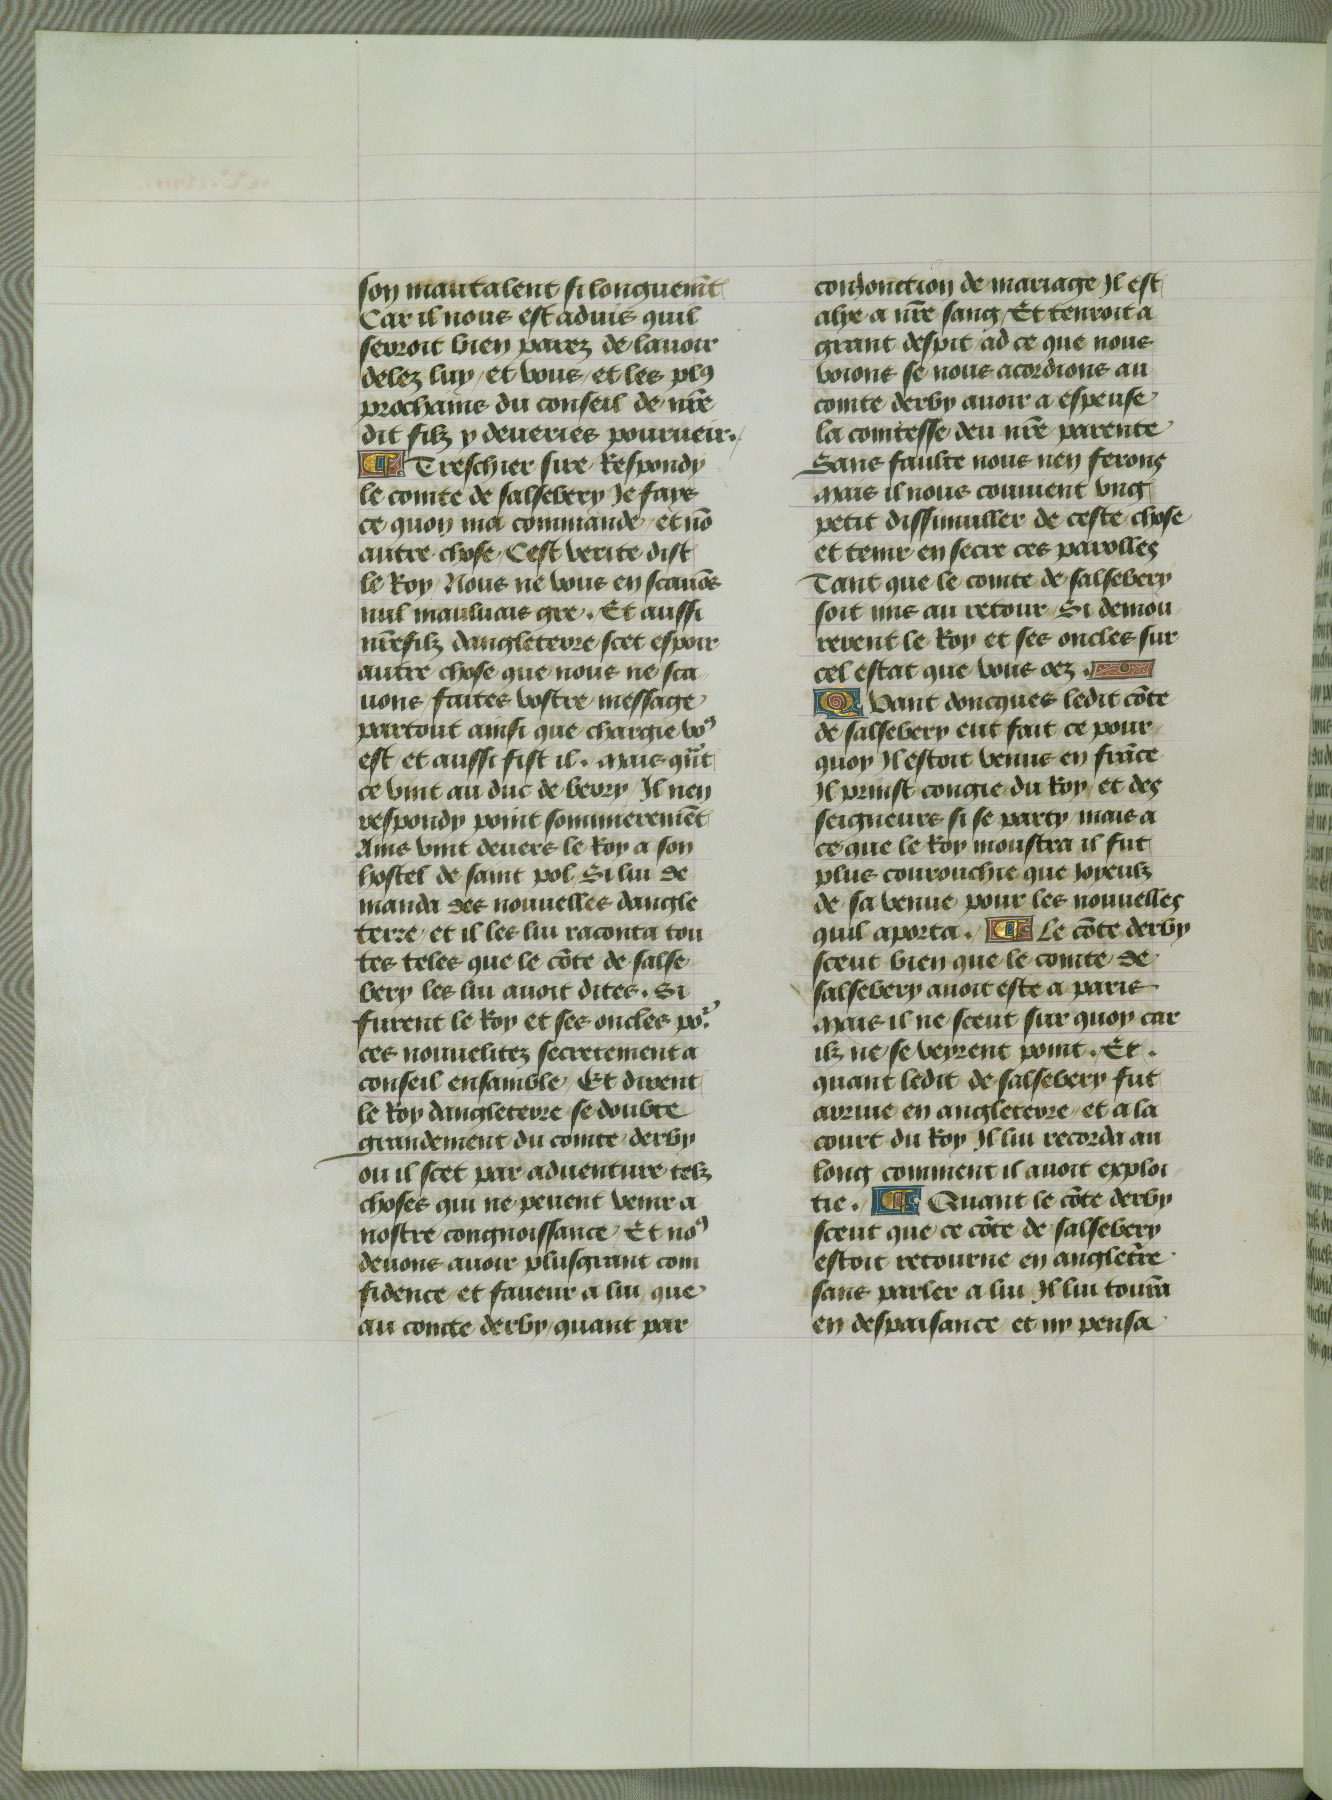 son mautalent si longuem̃t
Car il nous est aduis quil
seroit bien parez de lauoir
delez luy / et vous / et les plꝯ
prochains du conseil de nr̃e
dit filz y deueries pourueir.
¶ Treschier sire Respondy
le comte de salsebery Je fays
ce quon ma commande / et nõ
autre chose / Cest verite dist
le Roy Nous ne vous en scauõs
nul mauluais gre. Et aussi
nr̃e filz dangleterre scet espoir
autre chose que nous ne sca
uons / faites vostre message
partout ainsi que chargie voꝰ
est / et aussi fist il. Mais qũt
ce vint au duc de berry / Il nen
respondy point sommeremẽt
Ains vint deuers le Roy a son
hostel de saint pol Si lui de
manda des nouuelles dangle
terre / et il les lui raconta tou
tes teles que le cõte de salse
bery les lui auoit dites. Si
furent le Roy et ses oncles poᷣ
ces nouuelitez secretement a
conseil ensamble / Et dirent
le Roy dangleterre se doubte
grandement du comte derby
ou il scet par aduenture telz
choses qui ne peuent venir a
nostre congnoissance / Et noꝰ
deuons auoir plusgrant com
fidence / et faueur a lui / que
au comte derby / quant par
conJonction de mariage Il est
alye a nr̃e sang / Et tenroit a
grant despit ad ce que nous
voions se nous acordions au
comte derby auoir a espeuse
la comtesse deu nr̃e parente
Sans faulte nous nen ferons
Mais il nous conuient vng
petit dissimuller de ceste chose
et tenir en secre ces parolles
Tant que le comte de salsebery
soit mis au retour / Si demou
rerent le Roy et ses oncles sur
cel estat que vous oez.
Quant doncques ledit cõte
de salsebery eut fait ce pour
quoy Il estoit venus en frãce
Il prinst congie du Roy / et des
seigneurs si se party mais a
ce que le Roy moustra il fut
plus courouchie que Joyeulz
de sa venue pour les nouuelles
quil aporta. ¶ Le cõte derby
sceut bien que le comte de
salsebery auoit este a paris
Mais il ne sceut sur quoy car
ilz ne se veyrent point. Et.
quant ledit de salsebery fut
arriue en angleterre / et a la
court du Roy Il lui recorda au
long comment il auoit exploi
tie. ¶ Quant le cõte derby
sceut que ce cõte de salsebery
estoit retourne en angletr̃e
sans parler a lui Il lui tourña
en despaisance / et ny pensa